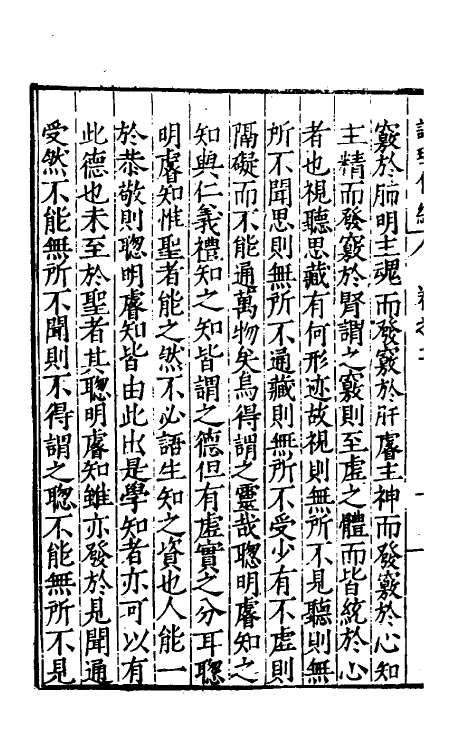 竅於肺明主魂而發竅於肝睿主神而發竅於心知
主精而發竅於腎謂之竅則至虛之體而皆統於心
者也視聽思藏有何形迹故視則無所不見聽則無
所不聞思則無所不通藏則無所不受少有不虛則
隔礙而不能通萬物矣烏得謂之靈哉聦明睿知之
知與仁義禮知之知皆謂之德但有虛實之分耳聦
明睿知惟聖者能之然不必語生知之資也人能一
於恭敬則聦明睿知皆由此出是學知者亦可以有
此德也未至於聖者其聦明睿知雖亦發於見聞通
受然不能無所不聞則不得謂之聦不能無所不見